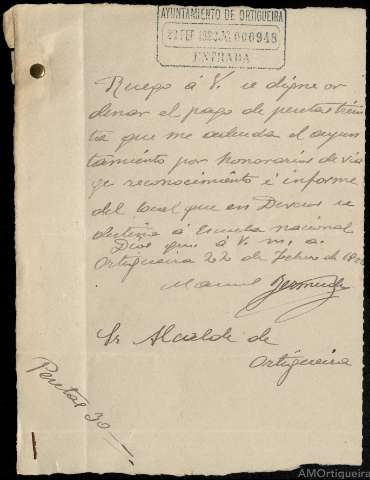 AYUNTAMIENTO DE ORTIGUEIRA
22 FEB 000948
ENTRADA
Ruego á V. se digne or
denar el pago de pesetas trein
ta que me adeuda el ayun
tamiento por honorarios de via
ge reconocimiento é informe
del local que en Devesos se
destina á Escuela nacional
Dios gue. á V. m. a.
Ortigueira 22 de Febrero de
Manuel Bermudez
Sr Alcalde de
Ortigueira
Pesetas 30
AMOrtigueira